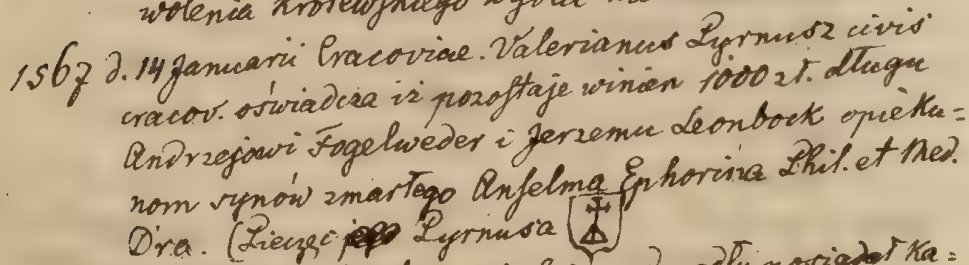 wolenia Królewskiego
1567 d. 14 Januarii Cracoviae. Valerianus Pyrnusz civis
cracov. oświadcza iż pozostaje winien 1000 zł. długu
Andrzejowi Fogelweder i Jerzemu Leonbock opieku=
nom synów zmarłego Anselma Ephorina Phil. et Med.
Dra. (Pieczęć Pyrnusa
posiadał ka=